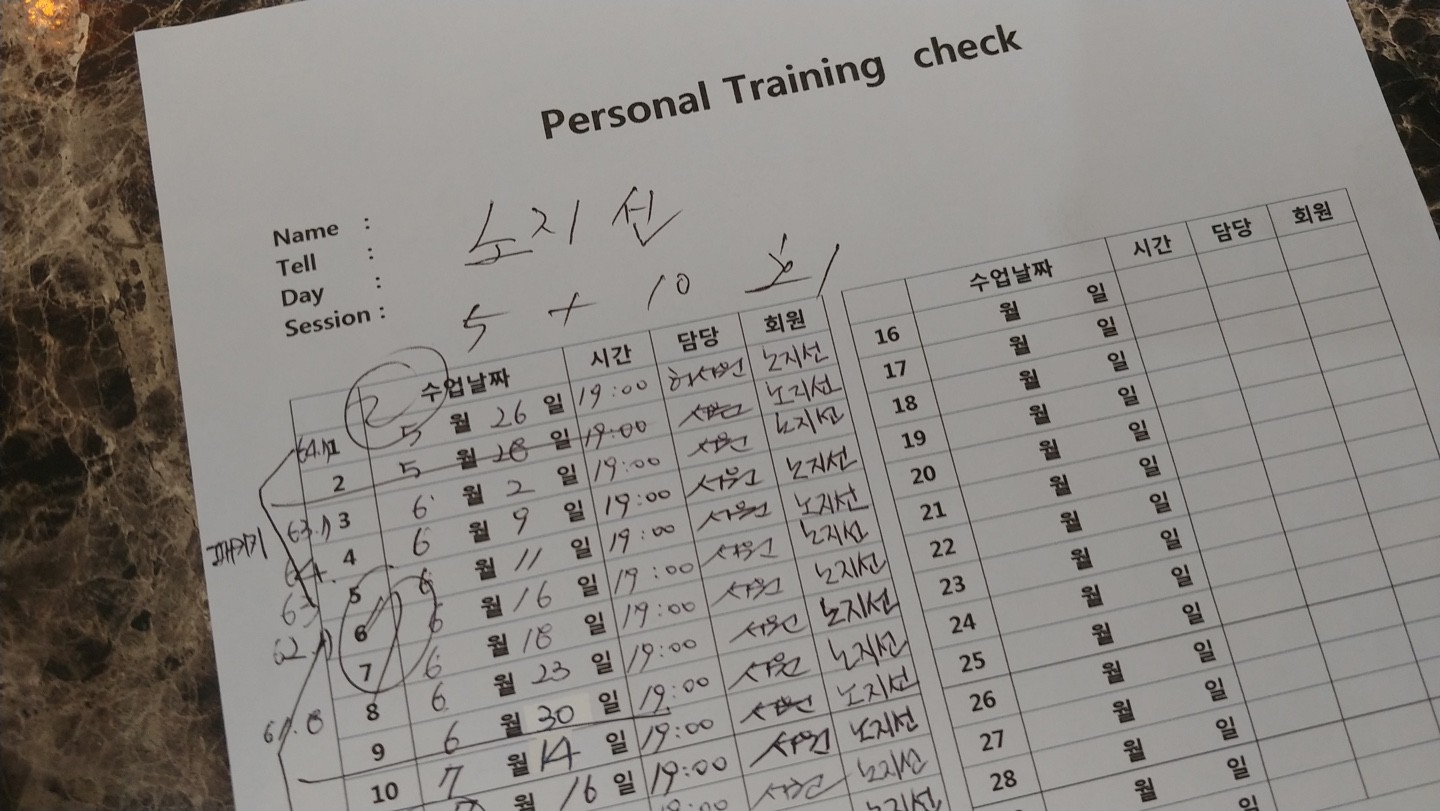 Personal Training check
Name : 노지선
Tell :
Day :
Session : 5 + 10 회
2
수업날짜 시간 담당 회원
1 5 월 26 일 19:00 허서원 노지선
2 5 월 28 일 19:00 서원 노지선
3 6 월 2 일 19:00 서원 노지선
4 6 월 9 일 19:00 서원 노지선
5 6 월 11 일 19:00 서원 노지선
6 6 월 16 일 19:00 서원 노지선
7 6 월 18 일 19:00 서원 노지선
8 6 월 23 일 19:00 서원 노지선
9 6 월 30 일 19:00 서원 노지선
10 7 월 14 일 19:00 서원 노지선
월 16 일 19:00 서원 노지선
19:00 서원 노지선
63.1
62.1
61.8
수업날짜 시간 담당 회원
16 월 일
17 월 일
18 월 일
19 월 일
20 월 일
21 월 일
22 월 일
23 월 일
24 월 일
25 월 일
26 월 일
27 월 일
28 월 일
월 일